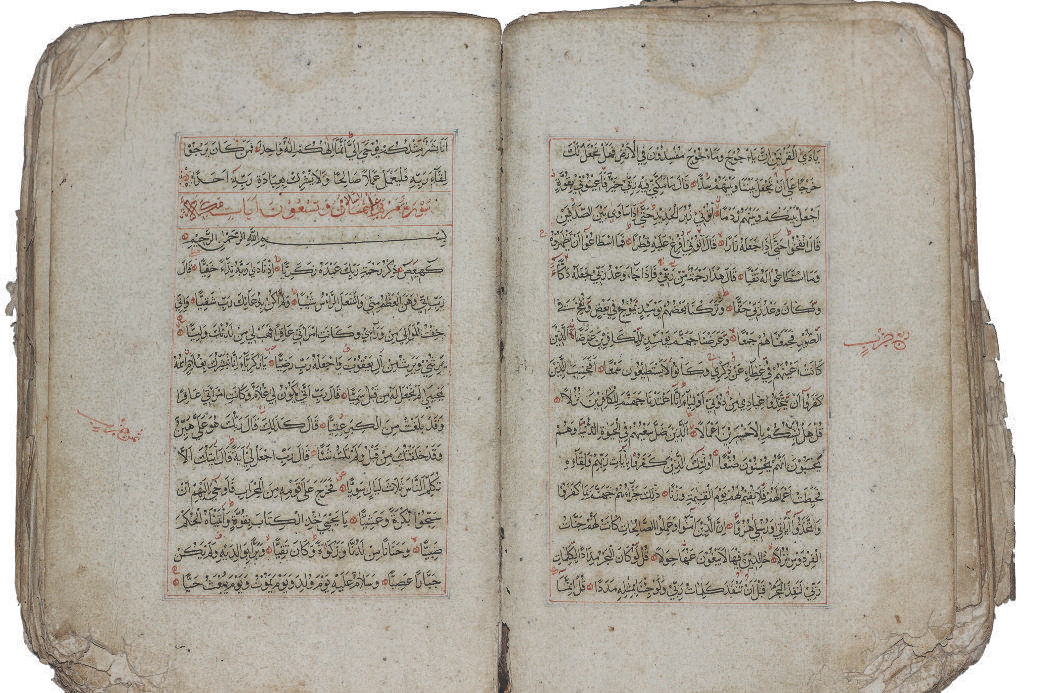 يا ذي القرنين إن ياجوج وماجوج مفسدون في الأرض فهل نجعل لك
خرجا على أن تجعل بيننا وبينهم سدا قال ما مكني فيه ربي خير فأعينوني بقوة
أجعل بينكم وبينهم ردما آتوني زبر الحديد حتى إذا ساوى بين الصدفين
قال انفخوا حتى إذا جعله نارا قال آتوني أفرغ عليه قطرا فما اسطاعوا أن يظهروه
وما استطاعوا له نقبا قال هذا رحمة من ربي فإذا جاء وعد ربي جعله دكاء
وكان وعد ربي حقا وتركنا بعضهم يومئذ يموج في بعض ونفخ في
الصور فجمعناهم جمعا وعرضنا جهنم يومئذ للكافرين عرضا الذين
كانت أعينهم في غطاء عن ذكري وكانوا لا يستطيعون سمعا أفحسب الذين
كفروا أن يتخذوا عبادي من دوني أولياء إنا أعتدنا جهنم للكافرين نزلا
قل هل ننبئكم بالأخسرين أعمالا الذين ضل سعيهم في الحيوة الدنيا وهم
يحسبون أنهم يحسنون صنعا أولئك الذين كفروا بآيات ربهم ولقائه
فحبطت أعمالهم فلا نقيم لهم يوم القيمة وزنا ذلك جزاؤهم جهنم بما كفروا
واتخذوا آياتي ورسلي هزوا إن الذين آمنوا وعملوا الصالحات كانت لهم جنات
الفردوس نزلا خالدين فيها لا يبغون عنها حولا قل لو كان البحر مدادا لكلمات
ربي لنفد البحر قبل أن تنفد كلمات ربي ولو جئنا بمثله مددا قل إنما
ربع حزب
أنا بشر مثلكم يوحى إلي أنما إلهكم إله واحد فمن كان يرجوا
لقاء ربه فليعمل عملا صالحا ولا يشرك بعبادة ربه أحدا
سورة مريم ثمان وتسعون آيات مكية
بسم الله الرحمن الرحيم
كهيعص ذكر رحمة ربك عبده زكريا إذ نادى ربه نداء خفيا قال
رب إني وهن العظم مني واشتعل الرأس شيبا ولم أكن بدعائك رب شقيا وإني
خفت الموالي من ورائي وكانت امرأتي عاقرا فهب لي من لدنك وليا
يرثني ويرث من آل يعقوب واجعله رب رضيا يا زكريا إنا نبشرك بغلام اسمه
يحيى لم نجعل له من قبل سميا قال رب أنى يكون لي غلام وكانت امرأتي عاقرا
وقد بلغت من الكبر عتيا قال كذلك قال ربك هو علي هين
وقد خلقتك من قبل ولم تك شيئا قال رب اجعل لي آية قال آيتك ألا
تكلم الناس ثلاث ليال سويا فخرج على قومه من المحراب فأوحى إليهم أن
سبحوا بكرة وعشيا يا يحيى خذ الكتاب بقوة وآتيناه الحكم
صبيا وحنانا من لدنا وزكوة وكان تقيا وبرا بوالديه ولم يكن
جبارا عصيا وسلام عليه يوم ولد ويوم يموت ويوم يبعث حيا